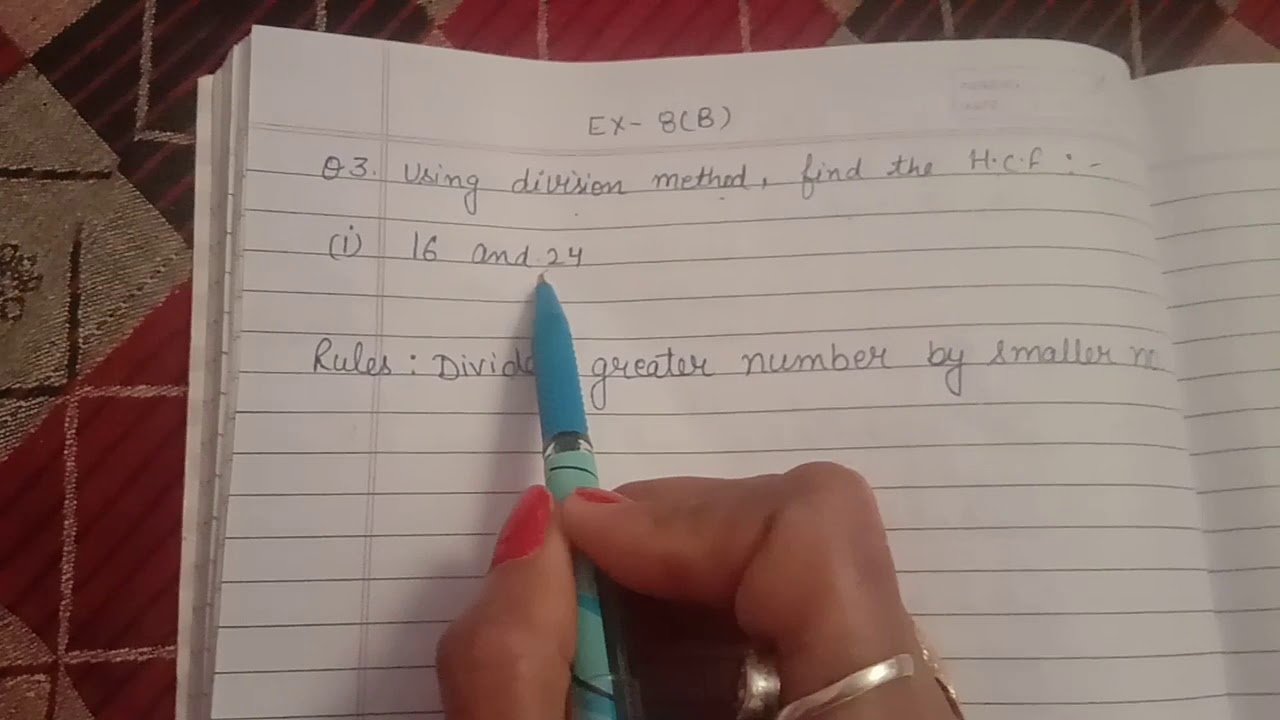 EX- 8(B)
Q3. Using division method, find the H.C.F :-
(i) 16 and 24
Rules : Divide greater number by smaller n